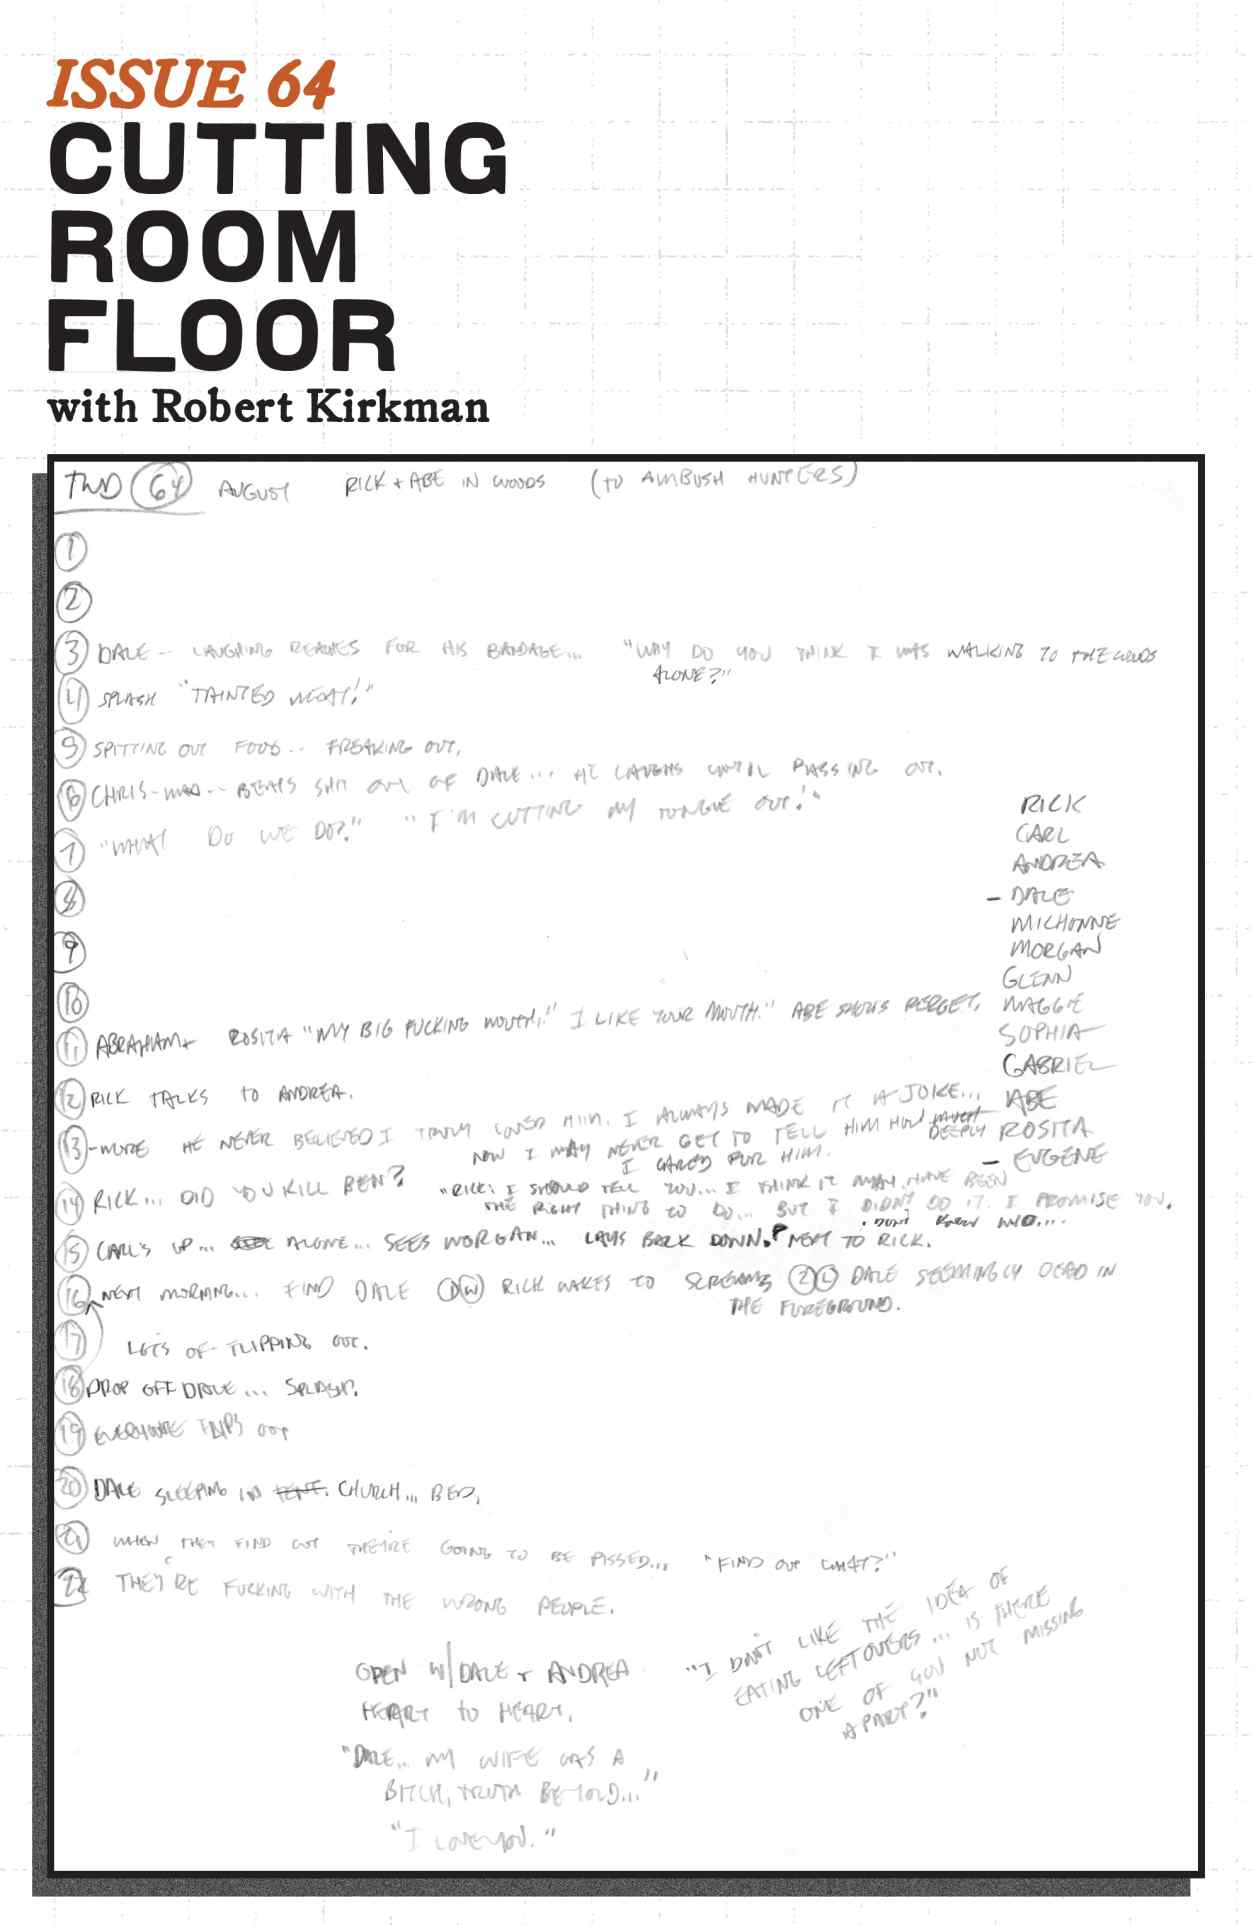 ISSUE 64
CUTTING
ROOM
FLOOR
with Robert Kirkman
TWD 64 AUGUST RICK + ABE IN WOODS (TO AMBUSH HUNTERS)
1
2
3 DALE -- LAUGHING REACHES FOR HIS BANDAGE... "WHY DO YOU THINK I WAS WALKING TO THE WOODS
ALONE?"
4 SPLASH "TAINTED MEAT!"
5 SPITTING OUT FOOD -- FREAKING OUT.
6 CHRIS - MAD -- BEATS SHIT OUT OF DALE... HE LAUGHS UNTIL PASSING OUT.
7 "WHAT DO WE DO?" "I'M CUTTING MY TONGUE OUT!"
8
9
10
11 ABRAHAM + ROSITA "MY BIG FUCKING MOUTH!" I LIKE YOUR MOUTH." ABE SHOWS
12 RICK TALKS TO ANDREA.
13 - MORE HE NEVER BELIEVED I TRULY LOVED HIM. I ALWAYS MADE IT A JOKE...
NOW I MAY NEVER GET TO TELL HIM HOW DEEPLY
I CARED FOR HIM.
14 RICK... DID YOU KILL BEN? "RICK, I SHOULD TELL YOU... I THINK IT MAY HAVE BEEN
THE RIGHT THING TO DO... BUT I DIDN'T DO IT. I PROMISE YOU.
DON'T KNOW WHO...
15 CARL'S UP... ALONE... SEES MORGAN... LAYS BACK DOWN. NEXT TO RICK.
16 NEXT MORNING... FIND DALE DW RICK WAKES TO SCREAMS 2L DALE SEEMINGLY DEAD IN
THE FOREGROUND.
17 LOTS OF FLIPPING OUT.
18 DROP OFF DALE... SPLASH.
19 EVERYONE FLIPS OUT
20 DALE SLEEPING IN TENT. CHURCH... BED.
21 WHEN THEY FIND OUT THEY'RE GOING TO BE PISSED... "FIND OUT WHAT?"
22 THEY'RE FUCKING WITH THE WRONG PEOPLE.
RICK
CARL
ANDREA
- DALE
MICHONNE
MORGAN
GLENN
MAGGIE
SOPHIA
GABRIEL
ABE
ROSITA
- EUGENE
OPEN W/ DALE + ANDREA
HEART TO HEART.
"DALE... MY WIFE WAS A
BITCH, TRUTH BE TOLD..."
"I LOVE YOU."
"I DON'T LIKE THE IDEA OF
EATING LEFTOVERS... IS THERE
ONE OF YOU NOT MISSING
A PART?"